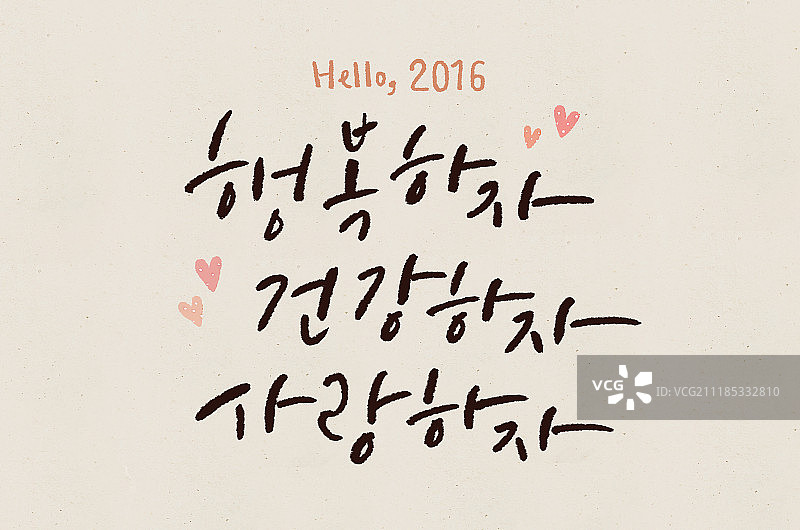 Hello, 2016
행복하자
건강하자
사랑하자
VCG
ID:VCG211185332810